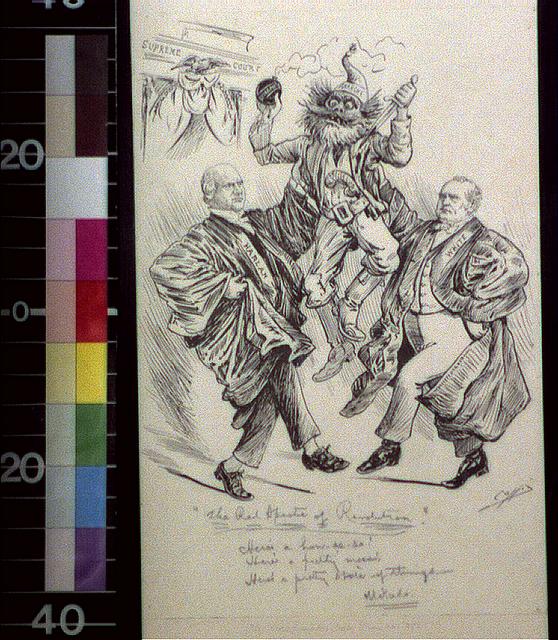 SUPREME COURT
HARLAN
"The Red Spectre of Revolution."
Here's a how-de-do!
Here's a pretty mess!
Here's a pretty state of things
Mikado.
20
0
20
40